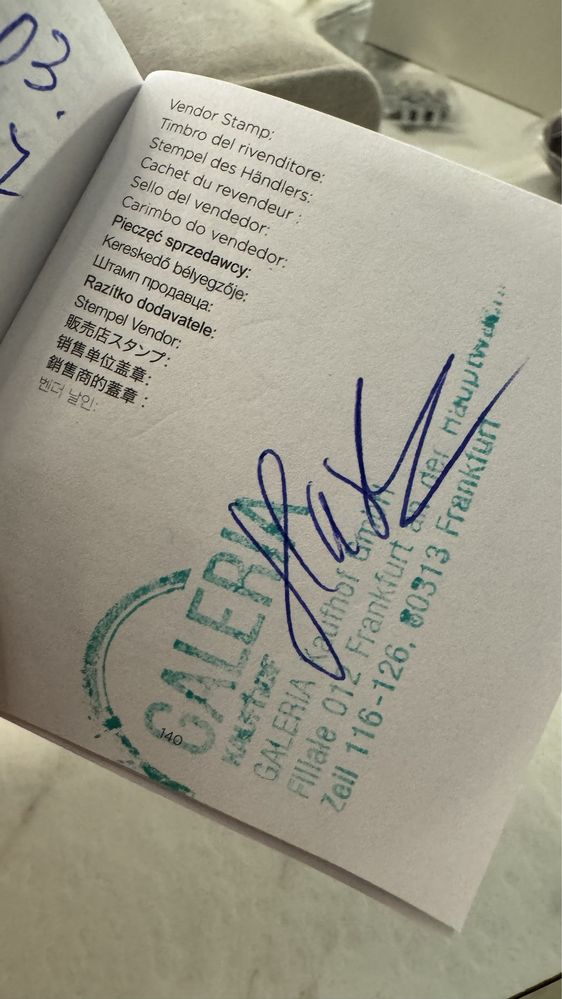 03.
Vendor Stamp:
Timbro del rivenditore:
Stempel des Händlers:
Cachet du revendeur :
Sello del vendedor:
Carimbo do vendedor:
Pieczęć sprzedawcy:
Kereskedő bélyegzője:
Штамп продавца:
Razítko dodavatele:
Stempel Vendor:
販売店スタンプ:
销售单位盖章:
銷售商的蓋章 :
벤더 날인:
GALERIA
Kaufhof
GALERIA Kaufhof GmbH
Filiale 012 Frankfurt an der Hauptwa
Zeil 116-126, 60313 Frankfurt
140